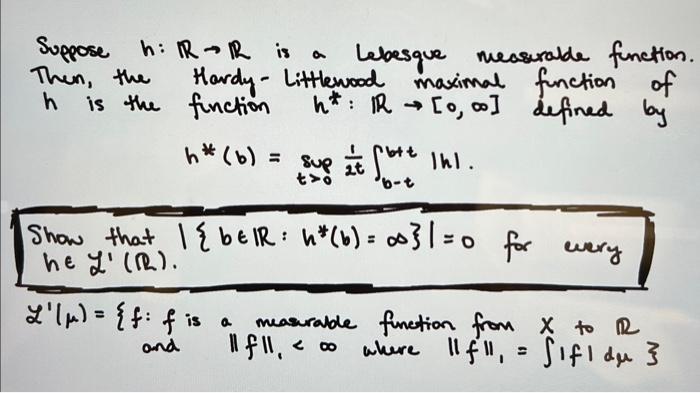 Suppose h: ℝ → ℝ is a Lebesgue measurable function.
Then, the Hardy-Littlewood maximal function of
h is the function h* : ℝ → [0, ∞] defined by
h*(b) = sup_{t>0} 1/2t ∫_{b-t}^{b+t} |h|.
Show that |{b∈ℝ : h*(b) = ∞}| = 0 for every
h∈ ℒ'(ℝ).
ℒ'(μ) = {f: f is a measurable function from X to ℝ
and ||f||₁ < ∞ where ||f||₁ = ∫|f| dμ}